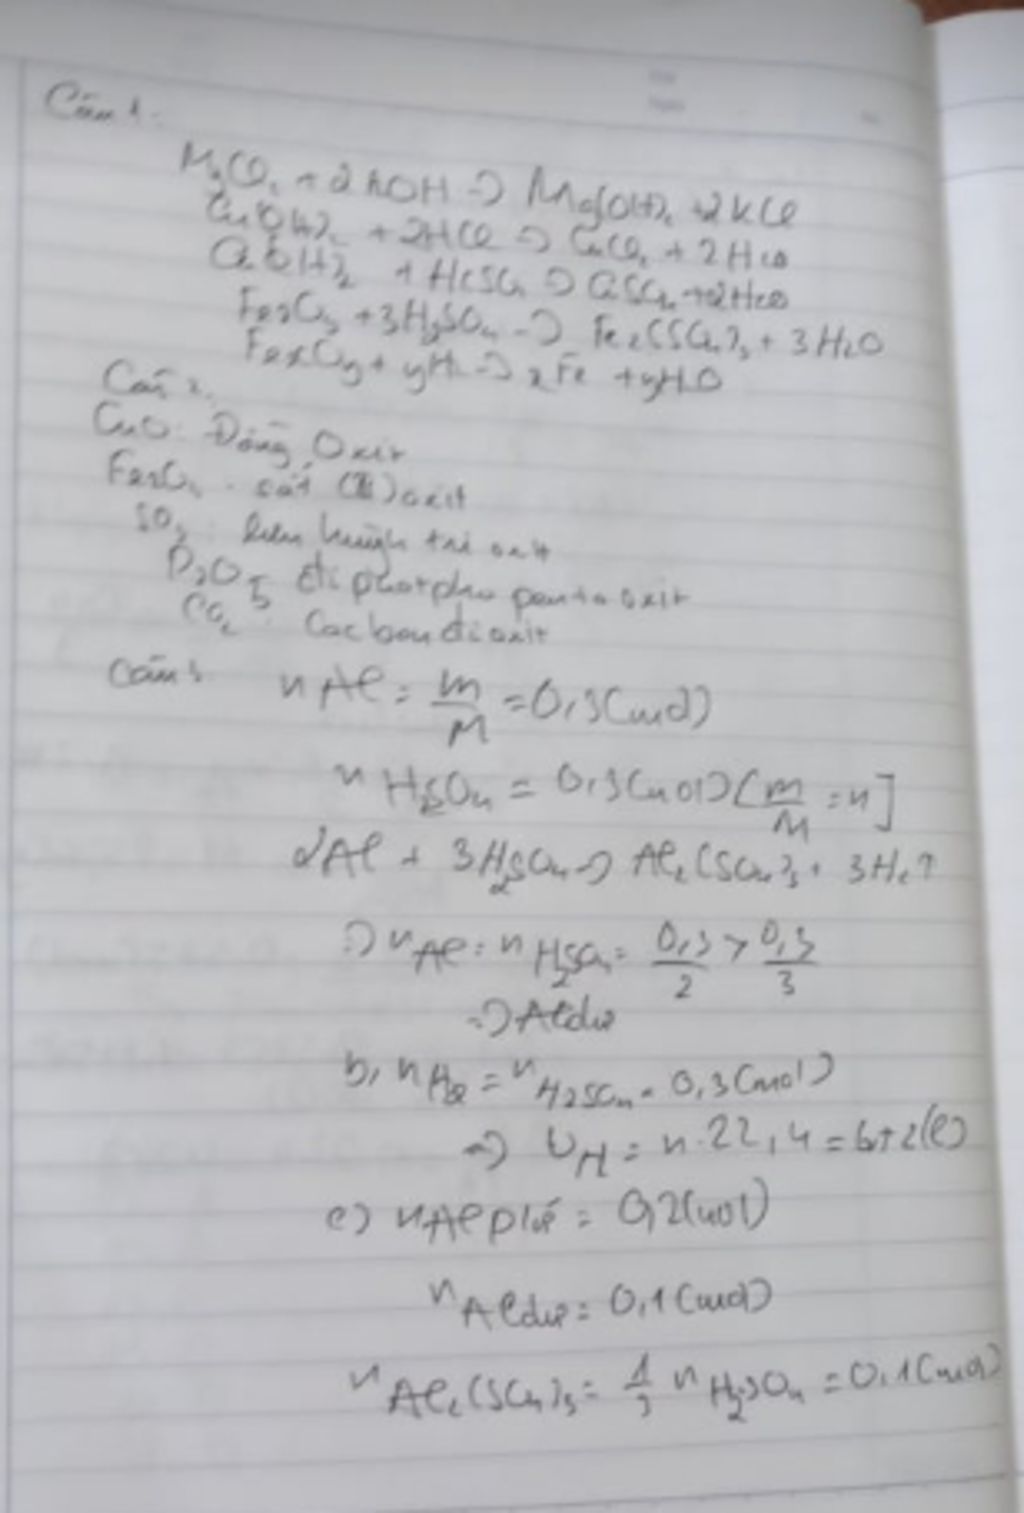 Câu 1:
MgCl₂ + 2KOH → Mg(OH)₂ + 2KCl
Cu(OH)₂ + 2HCl → CuCl₂ + 2H₂O
Cu(OH)₂ + H₂SO₄ → CuSO₄ + 2H₂O
Fe₂O₃ + 3H₂SO₄ → Fe₂(SO₄)₃ + 3H₂O
FexOy + yH₂ → xFe + yH₂O
Câu 2.
CuO: Đồng Oxit
Fe₂O₃: sắt (III) oxit
SO₃: lưu huỳnh tri oxit
P₂O₅: đi photpho penta oxit
CO₂: Cacbon đi oxit
Câu 3: nAl = m/M = 0,3(mol)
nH₂SO₄ = 0,3(mol) [m/M = n]
2Al + 3H₂SO₄ → Al₂(SO₄)₃ + 3H₂↑
=> nAl = nH₂SO₄ = 0,3/2 > 0,3/3
=> Al dư
b, nH₂ = nH₂SO₄ = 0,3(mol)
=> VH = n.22,4 = 6,72(l)
c) nAl = 0,2(mol)
nAl dư = 0,1(mol)
nAl₂(SO₄)₃ = 1/3 nH₂SO₄ = 0,1(mol)